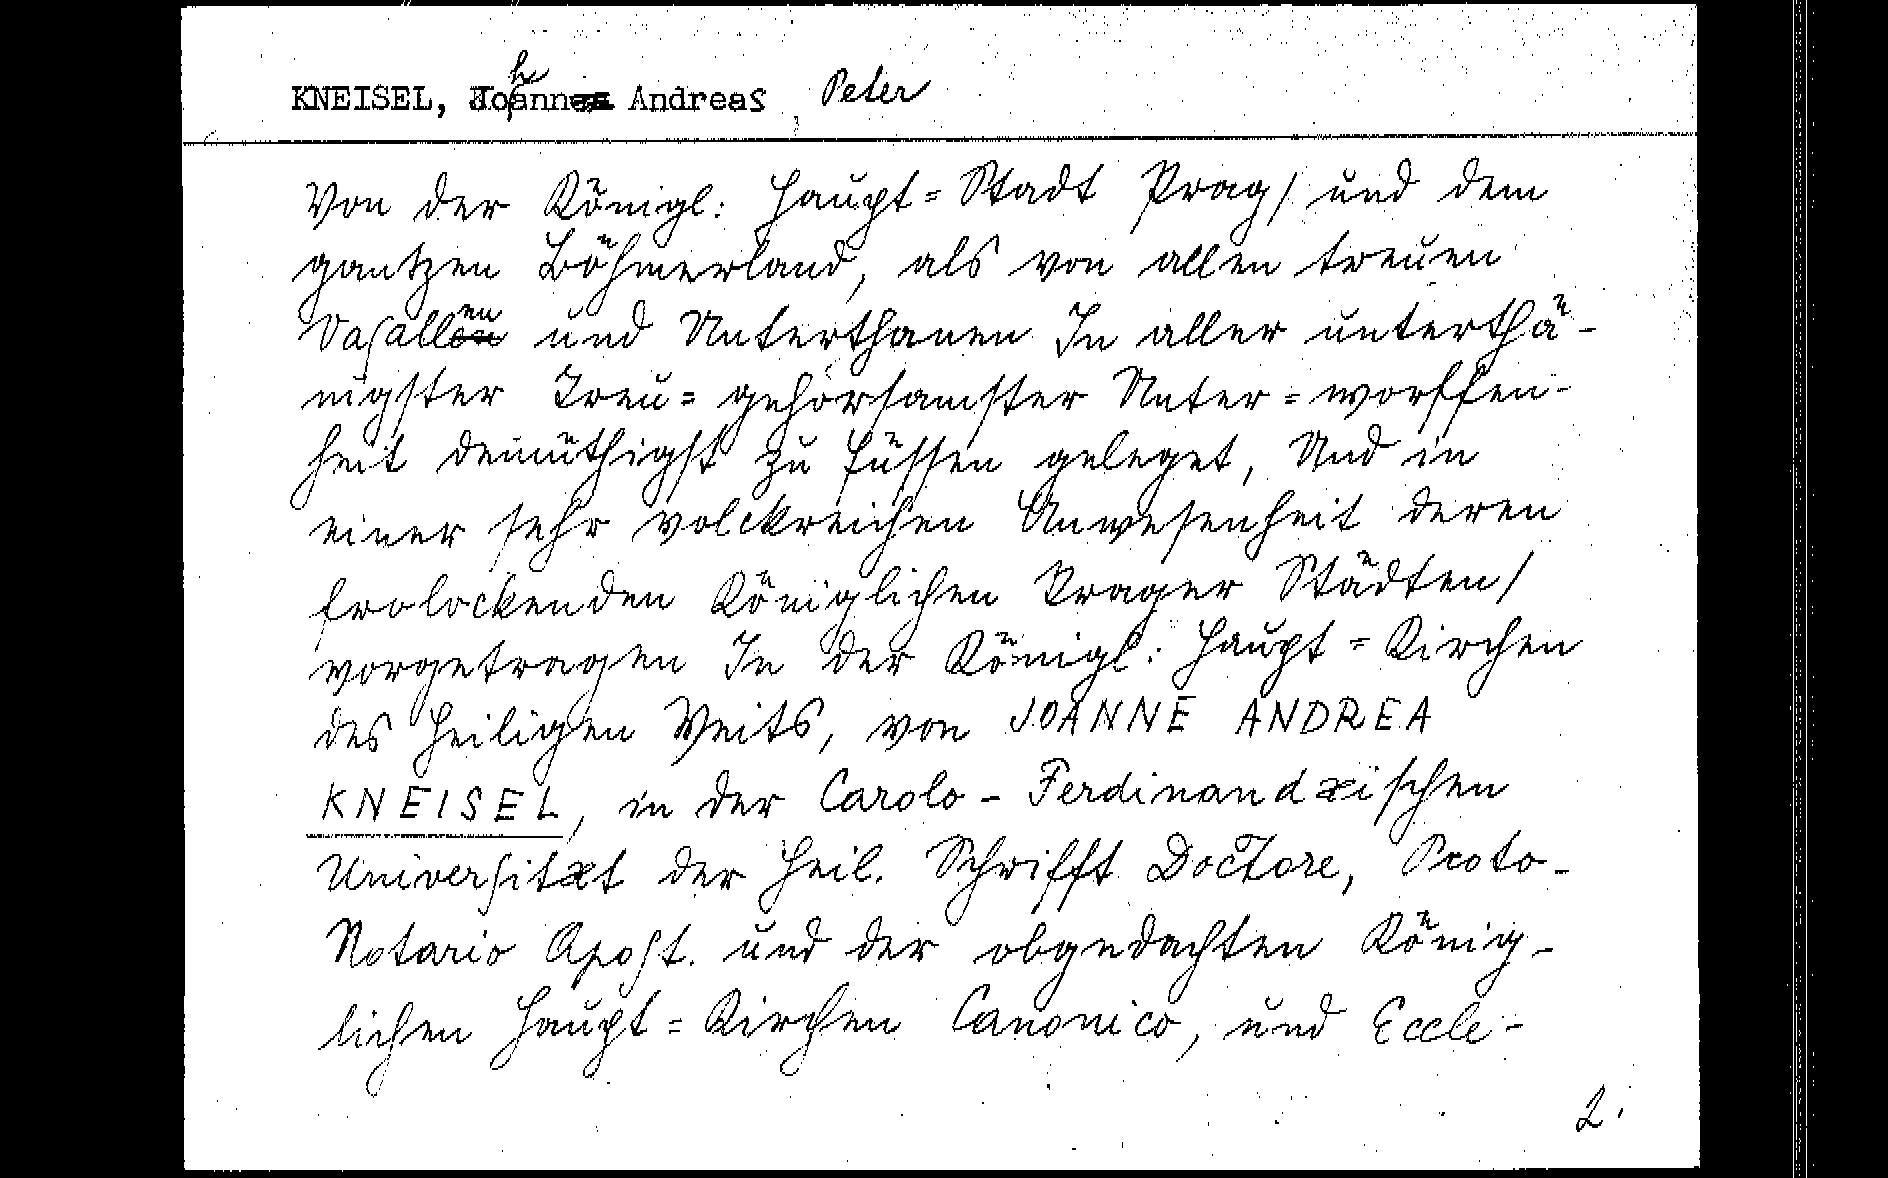 KNEISEL, Johann Andreas Peter
Von der Königl: Haupt=Stadt Prag/ und dem
gantzen Böhmerland, als von allen treuen
Vasallen und Unterthanen In aller unterthä-
nigster Treu= gehorsamster Unter=worffen-
heit demüthigst zu füssen geleget, Und in
einer sehr volckreichen Anwesenheit deren
frolockenden Königlichen Prager Städten/
vorgetragen In der Königl: Haupt=Kirchen
des Heiligen Weits, von JOANNE ANDREA
KNEISEL, in der Carolo-Ferdinandæischen
Universitæt der Heil. Schrifft Doctore, Proto-
Notario Apost. und der obgedachten König-
lichen Haupt=Kirchen Canonico, und Eccle-
2.